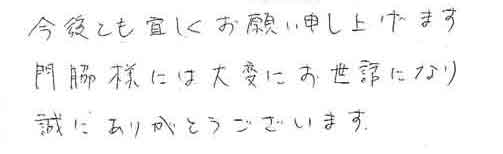 今後とも宜しくお願い申し上げます
門脇様には大変にお世話になり
誠にありがとうございます.